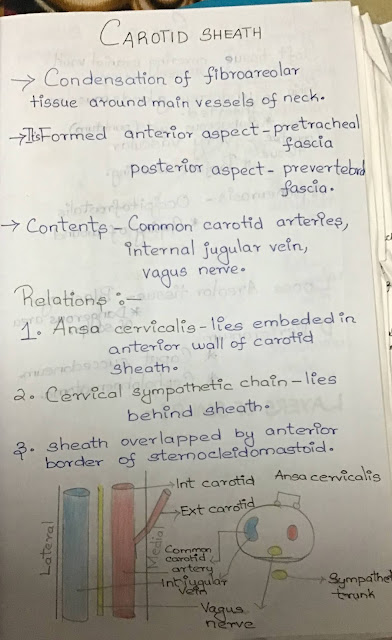 CAROTID SHEATH
→ Condensation of fibroareolar
tissue around main vessels of neck.
→ Its Formed anterior aspect - pretracheal
fascia
posterior aspect - prevertebral
fascia.
→ Contents - Common carotid arteries,
internal jugular vein,
vagus nerve.
Relations :-
1. Ansa cervicalis - lies embeded in
anterior wall of carotid
sheath.
2. Cervical sympathetic chain - lies
behind sheath.
3. sheath overlapped by anterior
border of sternocleidomastoid.
Lateral
Medial
Int carotid
Ext carotid
Common
carotid
artery
Int jugular
vein
Vagus
nerve
Ansa cervicalis
Sympathetic
trunk